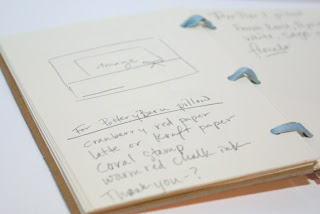 Image
For Pottery Barn pillow
cranberry red paper
latte or kraft paper
coral stamp
warm red chalk ink
Thank you-?